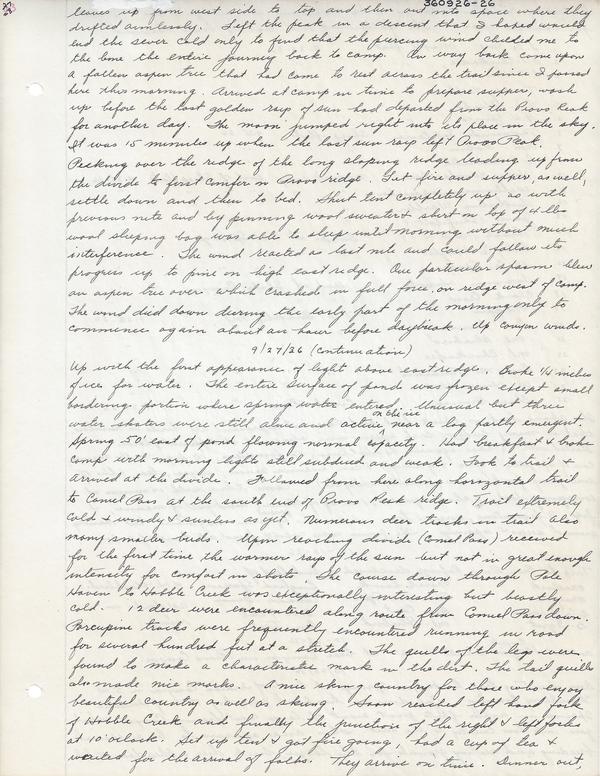 360926-26
leaves up from west side to top and then out into space where they
drifted aimlessly. Left the peak in a descent that I hoped would
end the sever cold only to find that the piercing wind chilled me to
the bone the entire journey back to camp. On way back came upon
a fallen aspen tree that had come to rest across the trail since I passed
here this morning. Arrived at camp in time to prepare supper, wash
up before the last golden rays of sun had departed from the Provo Peak
for another day. The moon jumped right into its place in the sky.
It was 15 minutes up when the last sun rays left Provo Peak.
Peeking over the ridge of the long sloping ridge leading up from
the divide to first conifer on Provo ridge. Let fire and supper, as well,
settle down and then to bed. Shut tent completely up as with
previous nite and by pinning wool sweater & shirt on top of 4 lbs
wool sleeping bag was able to sleep until morning without much
interference. The wind reacted as last nite and could follow its
progress up to pine on high east ridge. One particular spasm blew
an aspen tree over which crashed in full force, on ridge west of camp.
The wind died down during the early part of the morning only to
commence again about an hour before daybreak. Up canyon winds.
9/27/26 (continuation)
Up with the first appearance of light above east ridge. Broke 1/4 inches
of ice for water. The entire surface of pond was frozen except small
bordering portion where spring water entered. Unusual but three
water skaters were still alive and active near a log partly emergent.
Spring 50' east of pond flowing normal capacity. Had breakfast & broke
camp with morning lights still subdued and weak. Took to trail &
arrived at the divide. Followed from here along horizontal trail
to Camel Pass at the south end of Provo Peak ridge. Trail extremely
cold & windy & sunless as yet. Numerous deer tracks in trail also
many smaller birds. Upon reaching divide (Camel Pass) received
for the first time the warmer rays of the sun but not in great enough
intensity for comfort in shorts. The course down through Pole
Haven to Hobble Creek was exceptionally interesting but beastly
cold. 12 deer were encountered along route from Camel Pass down.
Porcupine tracks were frequently encountered running in road
for several hundred feet at a stretch. The quills of the legs were
found to make a characteristic mark in the dirt. The tail quills
also made nice marks. A nice skiing country for those who enjoy
beautiful country as well as skiing. Soon reached left hand fork
of Hobble Creek and finally the junction of the right & left forks
at 10 o'clock. Set up tent & got fire going, had a cup of tea &
waited for the arrival of folks. They arrive on time. Dinner out,